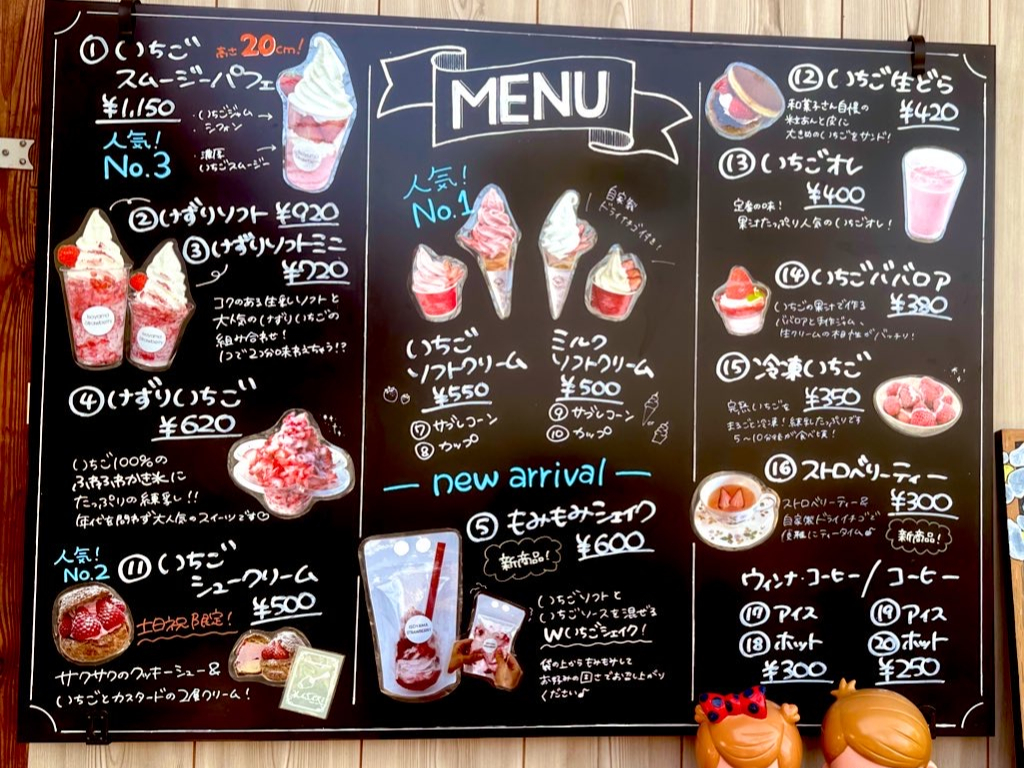 ① いちご
スムージーパフェ
高さ20cm!
¥1,150
人気!
No.3
・いちごジャム
シフォン
・濃厚
いちごスムージー
② けずりソフト ¥920
③ けずりソフトミニ
¥720
コクのある生乳ソフトと
大人気のけずりいちごの
組み合わせ!
1つで2つ分味わえちゃう!?
④ けずりいちご
¥620
いちご100%の
ふわふわかき氷に
たっぷりの練乳!!
年代を問わず大人気のスイーツです♡
人気!
No.2
⑪ いちご
シュークリーム
¥500
土日祝日限定!
サクサクのクッキーシュー&
いちごとカスタードの2層クリーム!
MENU
人気!
No.1
自家製
ドライイチゴ付き!
いちご
ソフトクリーム
¥550
⑦ サブレコーン
⑧ カップ
ミルク
ソフトクリーム
¥500
⑨ サブレコーン
⑩ カップ
new arrival
⑤ もみもみシェイク
新商品!
¥600
いちごソフトと
いちごソースを混ぜる
Wいちごシェイク!
袋の上からもみもみして
お好みの固さでお召し上がり
ください♪
⑫ いちご生どら
¥420
和菓子さん自慢の
粒あんと皮に
大きめのいちごをサンド!
⑬ いちごオレ
¥400
定番の味!
果汁たっぷり人気のいちごオレ!
⑭ いちごババロア
¥380
いちごの果汁で作る
ババロアと手作りジャム、
生クリームの相性がバッチリ!
⑮ 冷凍いちご
¥350
完熟いちごを
まるごと冷凍!練乳たっぷりです
5〜10分後が食べ頃!
⑯ ストロベリーティー
¥300
ストロベリーティー&
自家製ドライイチゴで
優雅にティータイム♪
新商品!
ウィンナ・コーヒー/コーヒー
⑰ アイス
⑱ ホット
¥300
⑲ アイス
⑳ ホット
¥250